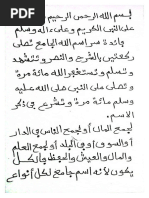 بسم الله الرحمن الرحيم
على النبي الكريم وعلى اله وسلم
فائدة سر اسم الله الجامع تصلى
ركعتين بالشرح والنصر وتتشهد
وتسلم وتستغفر الله مائة مرة
وتصلى على النبى صلى الله عليه
وسلم مائة مرة وتشرع في ذكر
الاسم
لجمع المال أو لجمع الناس في الدار
أو السوق أو فى أي البلد أو لجمع العلم
والمال والعيش والحفظ والكل
يكون لأنه اسم جامع لكل أنواع